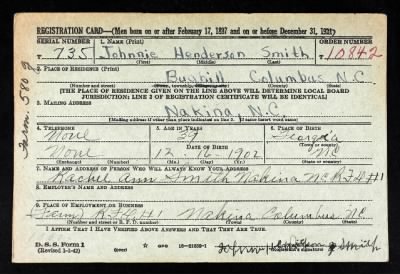 REGISTRATION CARD—(Men born on or after February 17, 1897 and on or before December 31, 1921)
SERIAL NUMBER 1. NAME (Print) ORDER NUMBER
T 735 Johnnie Henderson Smith 10842
(First) (Middle) (Last)
2. PLACE OF RESIDENCE (Print)
Bughill Columbus N.C.
(Number and street) (Town, township, village, or city) (County) (State)
[THE PLACE OF RESIDENCE GIVEN ON THE LINE ABOVE WILL DETERMINE LOCAL BOARD
JURISDICTION; LINE 2 OF REGISTRATION CERTIFICATE WILL BE IDENTICAL]
3. MAILING ADDRESS
Nakina, N.C.
[Mailing address if other than place indicated on line 2. If same insert word same]
4. TELEPHONE 5. AGE IN YEARS 6. PLACE OF BIRTH
None 39 Georgia
DATE OF BIRTH (Town or county)
None 12-16-1902 NC
(Exchange) (Number) (Mo.) (Day) (Yr.) (State or country)
7. NAME AND ADDRESS OF PERSON WHO WILL ALWAYS KNOW YOUR ADDRESS
Rachel Ann Smith Nakina NC RFD #1
8. EMPLOYER'S NAME AND ADDRESS
9. PLACE OF EMPLOYMENT OR BUSINESS
(Farm) RFD #1 Nakina Columbus NC
(Number and street or R. F. D. number) (Town) (County) (State)
I AFFIRM THAT I HAVE VERIFIED ABOVE ANSWERS AND THAT THEY ARE TRUE.
D. S. S. Form 1
(Revised 1-1-42) (over) 16—21630-1 Smith